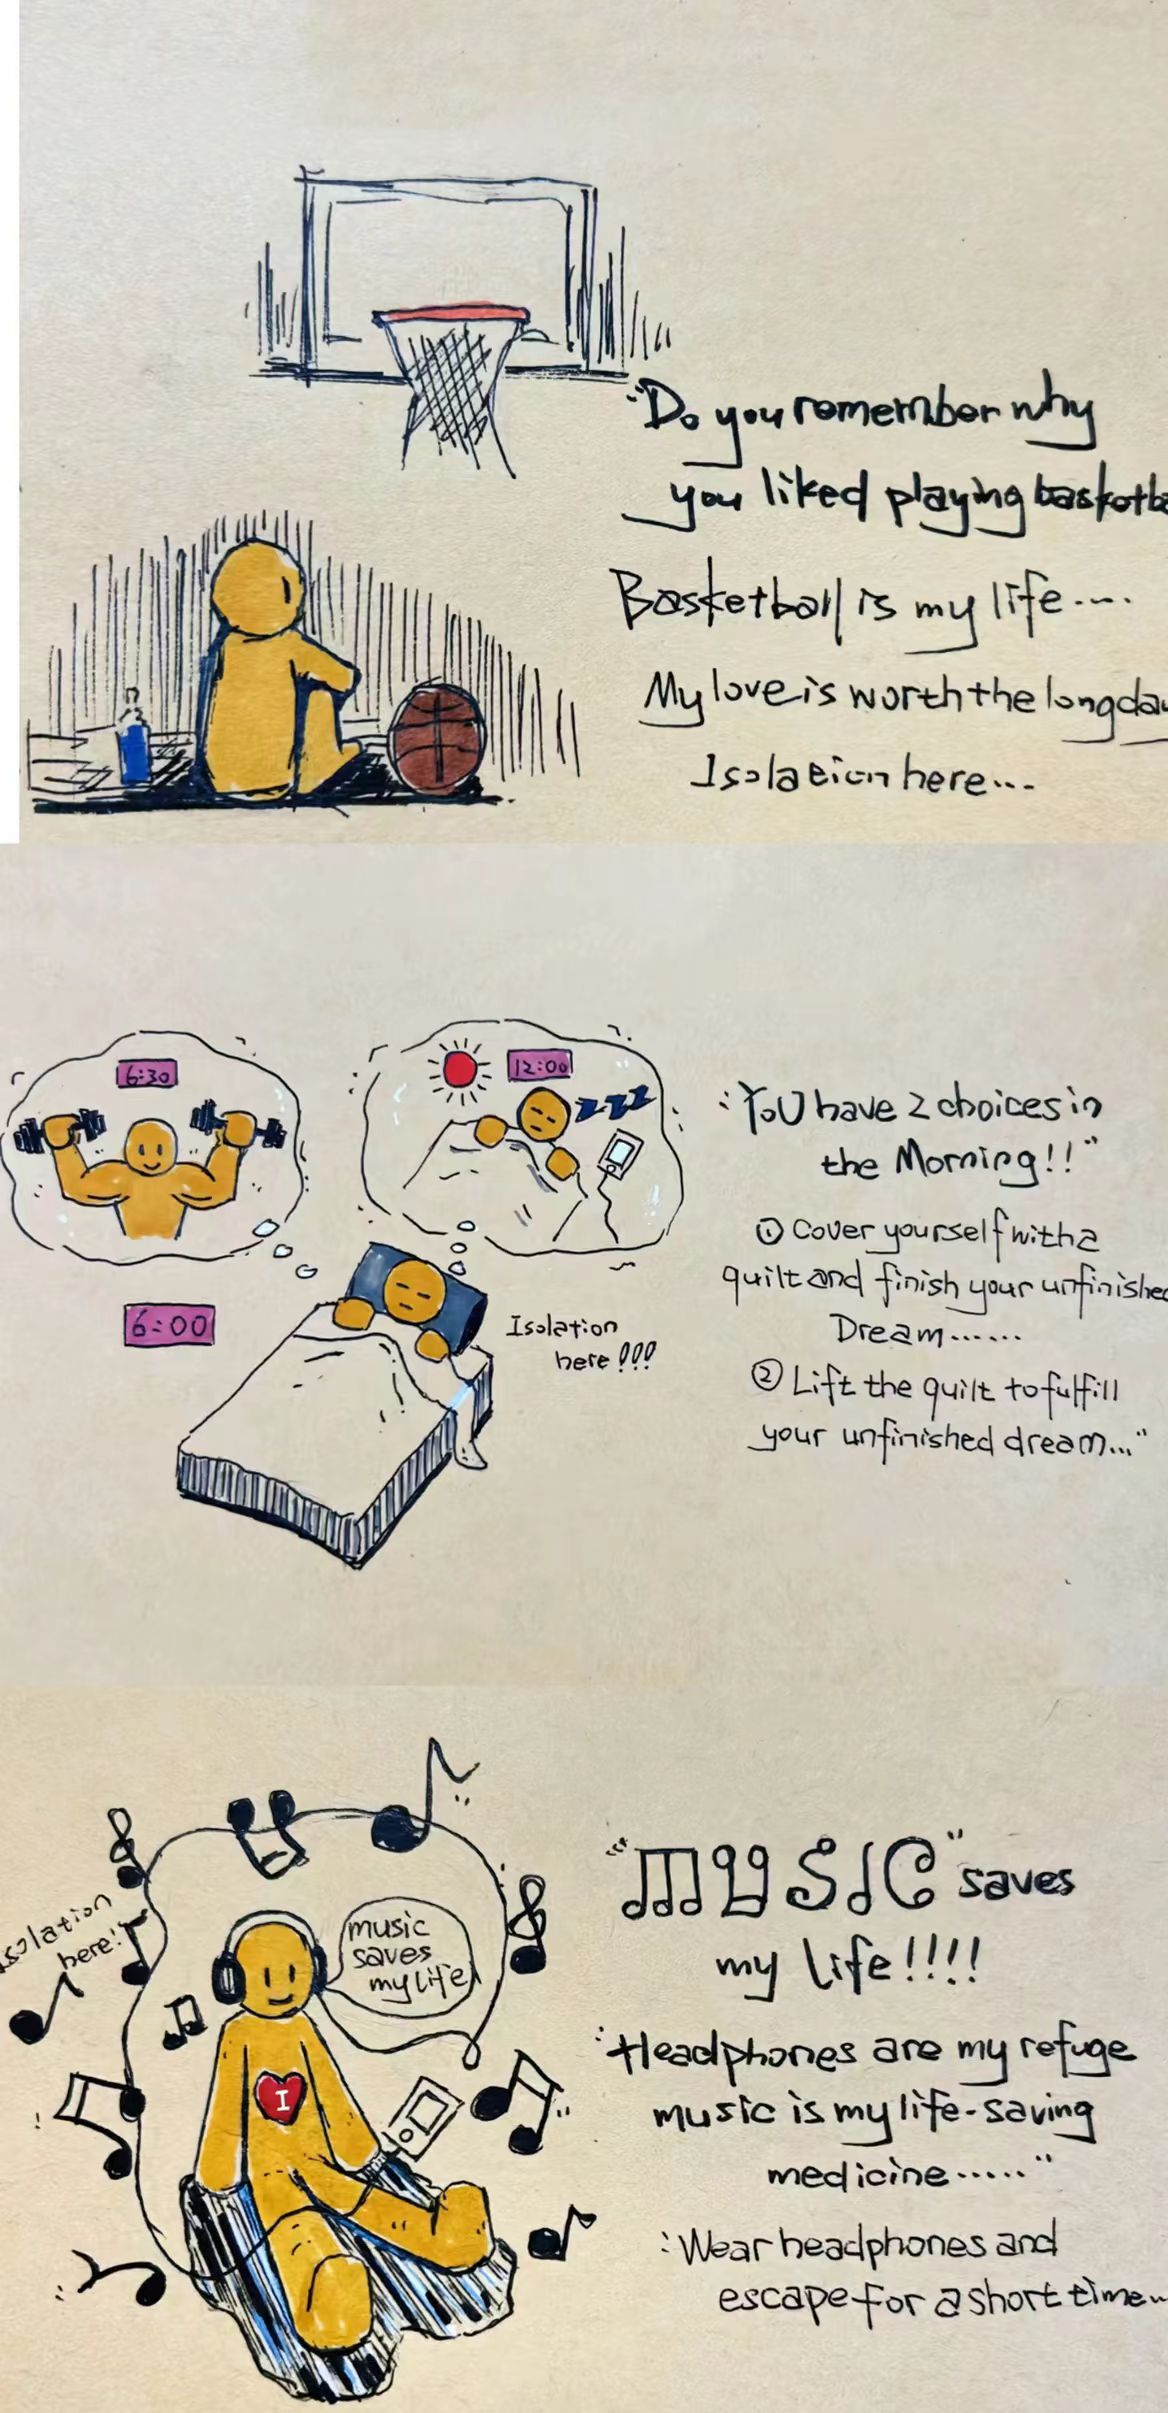 "Do you remember why
you liked playing basketba
Basketball is my life....
My love is worth the long day
Isolation here...
6:30
12:00
zzz
6:00
Isolation
here!!!
"YoU have 2 choices in
the Morning!!"
① Cover yourself with a
quilt and finish your unfinished
Dream......
② Lift the quilt to fulfill
your unfinished dream..."
Isolation
here!
music
saves
my life
I
"MUSIC" saves
my life!!!!
"Headphones are my refuge
music is my life-saving
medicine....."
"Wear headphones and
escape for a short time..